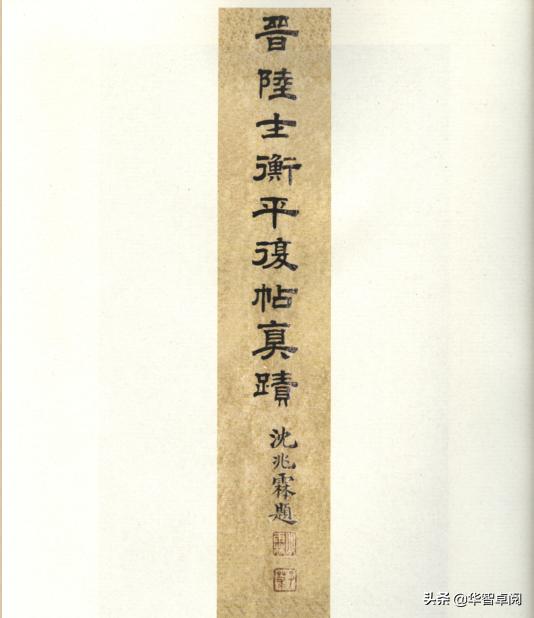 晋陸士衡平復帖真蹟
沈兆霖題
头条 @华智卓阅